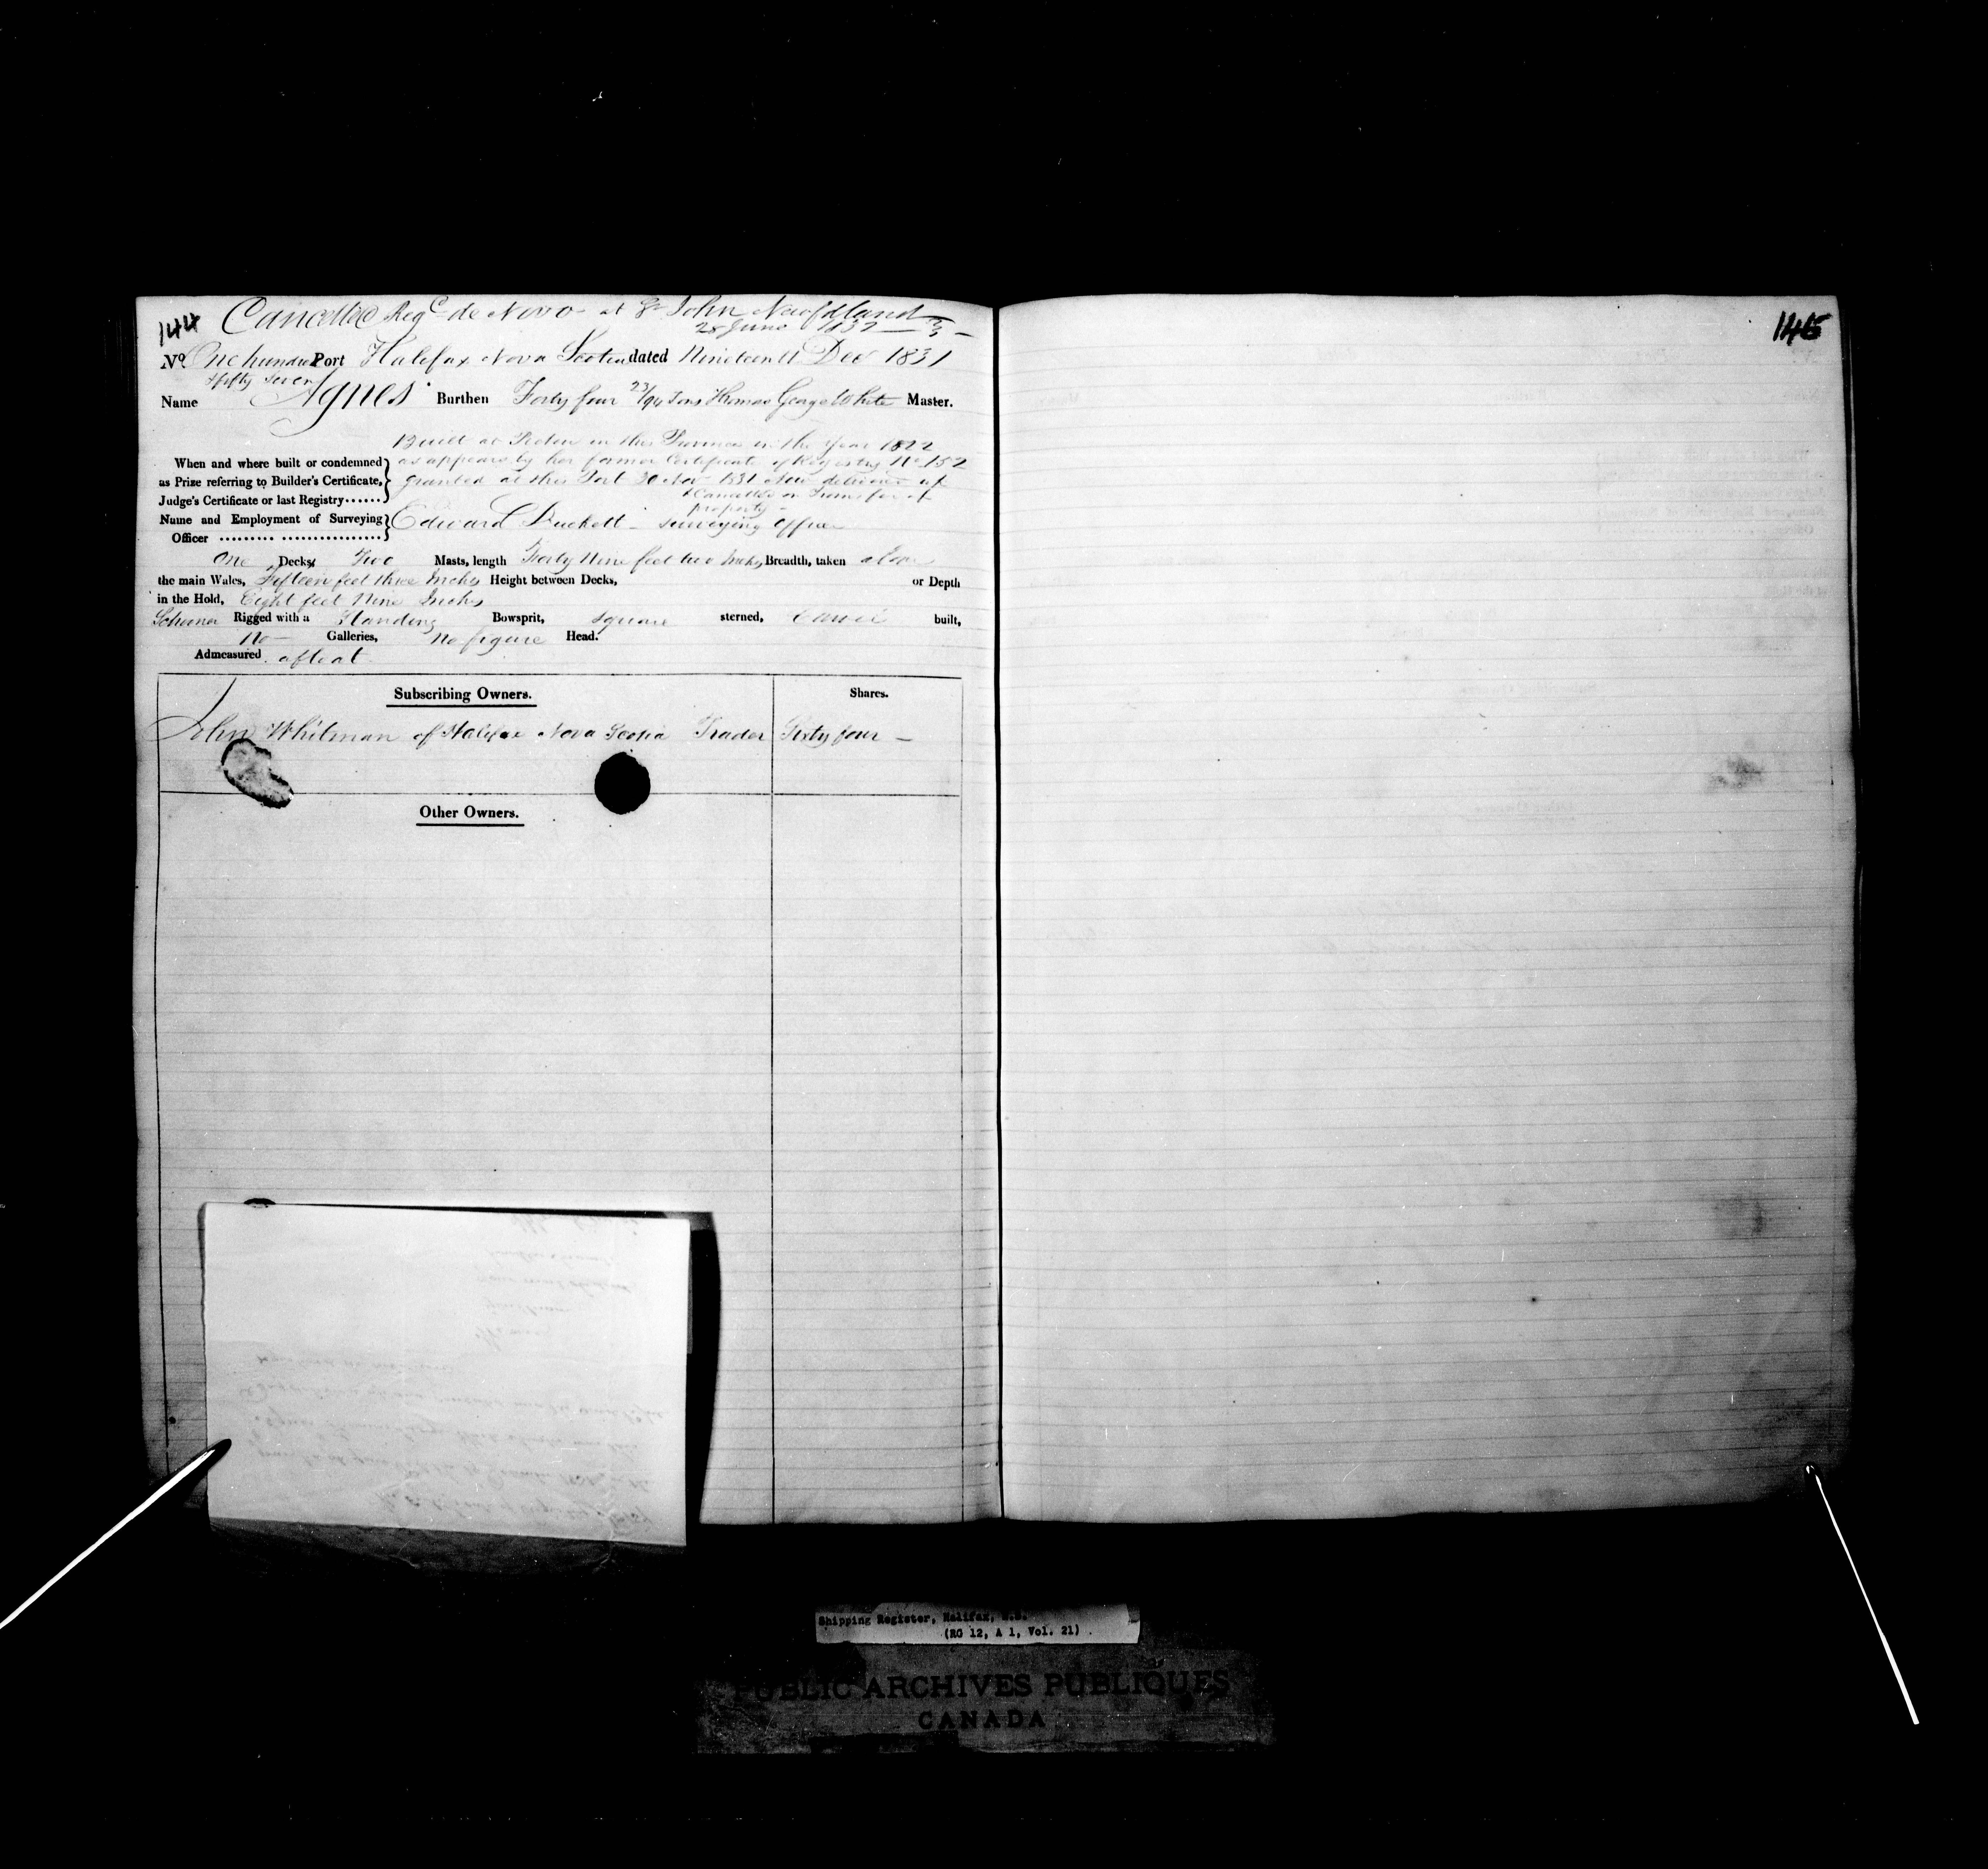 Cancelled Reg^d de Novo at St John Newfdland
144
28 June 1832
No. One hundred Port Halifax Nova Scotia dated Nineteenth Dec 1831
& fifty seven
Name Agnes Burthen Forty four 23/94 Tons Thomas George White Master.
Built at Pictou in this Province in the Year 1822
as appears by her former Certificate of Registry No 152
When and where built or condemned
as Prize referring to Builder's Certificate,
Judge's Certificate or last Registry
granted at this Port 30 Nov 1831 Now delivered up
& Cancelled on Transfer of
property
Name and Employment of Surveying Officer Edward Duckett - surveying officer
One Decks Two Masts, length Forty Nine feet two Inches Breadth, taken above
the main Wales, Fifteen feet three Inches Height between Decks, or Depth
in the Hold, Eight feet Nine Inches
Schooner Rigged with a Standing Bowsprit, square sterned, Carvel built,
No Galleries, No figure Head.
Admeasured afloat
Subscribing Owners. Shares.
John Whitman of Halifax Nova Scotia Trader Sixty four
Other Owners.
145
Shipping Register, Halifax, N.S.
(RG 12, A 1, Vol. 21)
PUBLIC ARCHIVES PUBLIQUES
CANADA